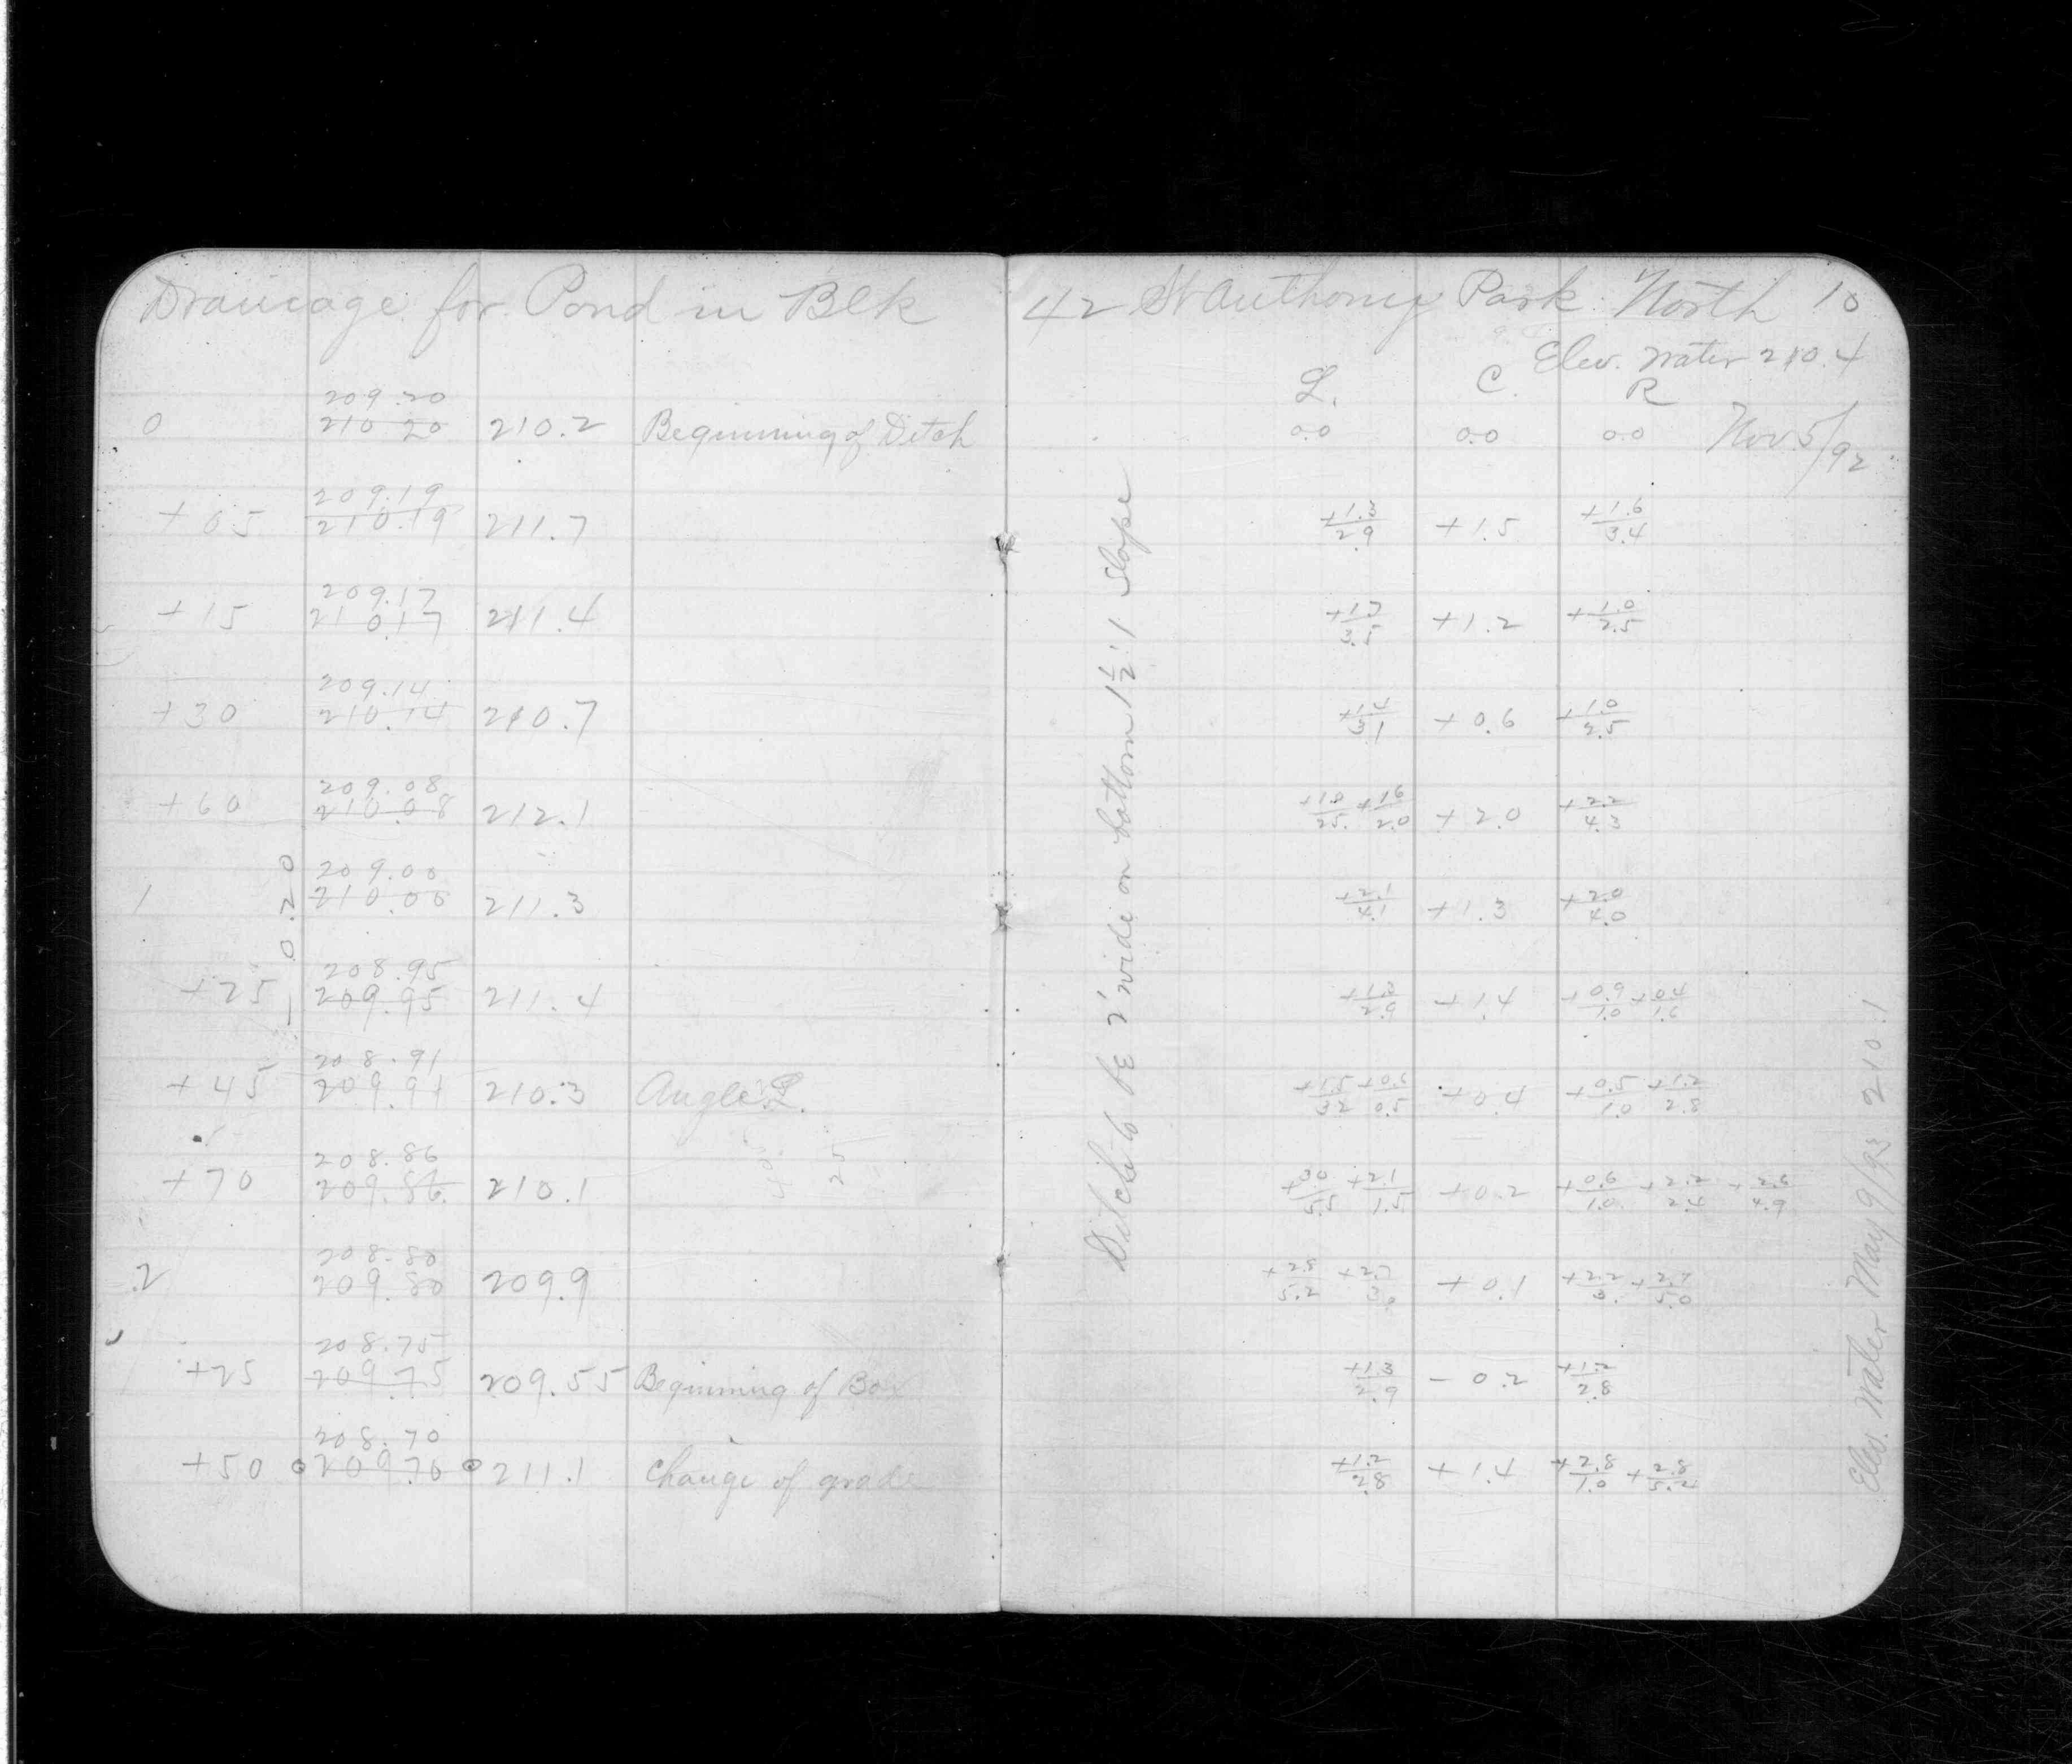 Drainage for Pond in Blk 42 St Anthony Park North 10
Elev. Water 210.4
L. C. R
209.20
0 210.20 210.2 Beginning of Ditch 0.0 0.0 0.0 Nov 5/92
209.19
+05 210.19 211.7 +1.3/2.9 +1.5 +1.6/3.4
209.17
+15 210.17 211.4 +1.7/3.5 +1.2 +1.0/2.5
209.14
+30 210.14 210.7 +1.4/3.1 +0.6 +1.0/2.5
209.08
+60 210.08 212.1 +1.8/25. +1.6/2.0 +2.0 +2.2/4.3
209.00
1 210.00 211.3 +2.1/4.1 +1.3 +2.0/4.0
0.20
208.95
+25 209.95 211.4 +1.3/2.9 +1.4 +0.9/1.0 +0.4/1.6
208.91
+45 209.91 210.3 Angle L. +1.5/3.2 +0.3/0.5 +0.4 +0.5/1.0 +1.2/2.8
208.86
+70 209.86 210.1 +30/5.5 +2.1/1.5 +0.2 +0.6/1.0 +2.2/2.4 +2.6/4.9
208.80
2 209.80 209.9 +2.8/5.2 +2.7/3. +0.1 +2.2/3. +2.7/5.0
208.75
+25 209.75 209.55 Beginning of Box +1.3/2.9 -0.2 +1.2/2.8
208.70
+50 209.70 211.1 Change of grade +1.2/2.8 +1.4 +2.8/1.0 +2.8/5.2
Ditch to be 2' wide on bottom 1 1/2:1 Slope
Elev. Water May 9/93 210.1